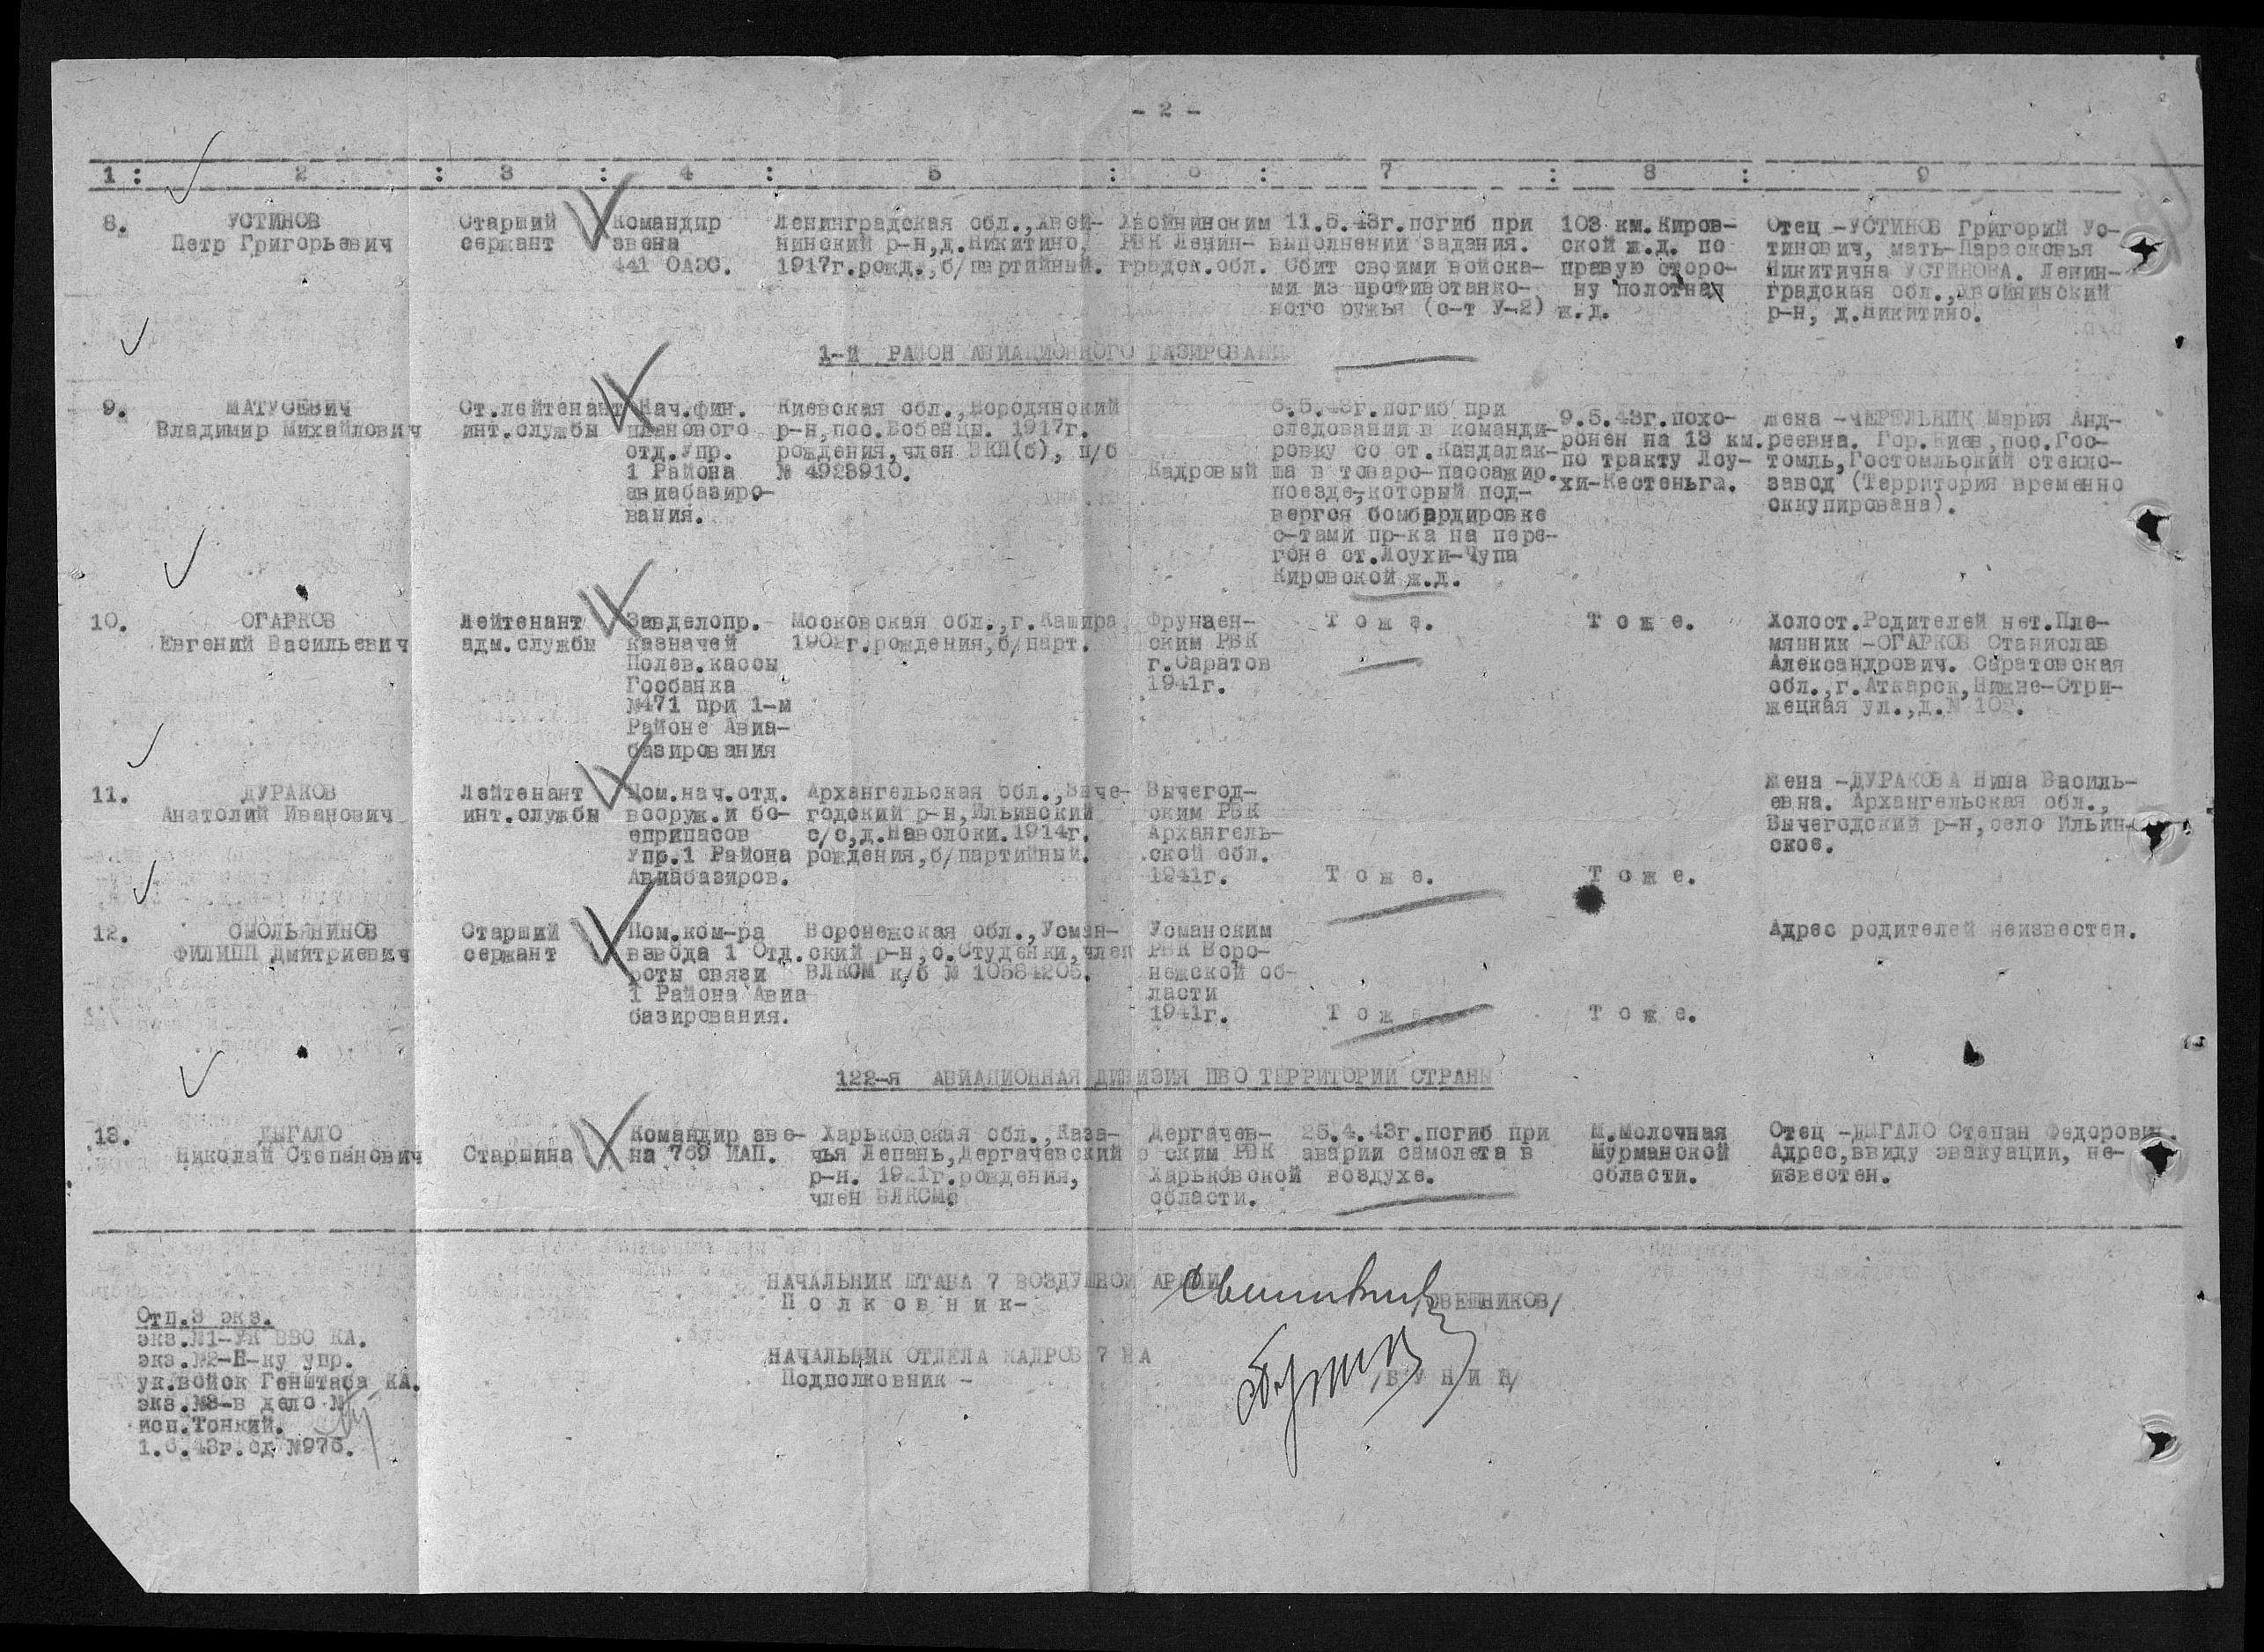 - 2 -
1 : 2 : 3 : 4 : 5 : 6 : 7 : 8 : 9
8. УСТИНОВ Петр Григорьевич
Старший сержант
Командир звена 441 ОАЭС.
Ленинградская обл., Хвой-
нинский р-н, д.Никитино,
1917г.рожд., б/партийный.
Хвойнинским
РВК Ленин-
градск.обл.
11.5.43г.погиб при
выполнении задания.
Сбит своими войска-
ми из противотанко-
вого ружья (с-т У-2)
103 км.Киров-
ской ж.д. по
правую сторо-
ну полотна
ж.д.
Отец -УСТИНОВ Григорий Ус-
тинович, мать-Парасковья
Никитична УСТИНОВА. Ленин-
градская обл., Хвойнинский
р-н, д.Никитино.
1-й РАЙОН АВИАЦИОННОГО БАЗИРОВАНИЯ
9. МАТУСЕВИЧ
Владимир Михайлович
Ст.лейтенант
инт.службы
Нач.фин.
планового
отд.Упр.
1 Района
авиабазиро-
вания.
Киевская обл., Бородянский
р-н, пос.Бобенцы. 1917г.
рождения, член ВКП(б), п/б
№ 4923910.
Кадровый
6.5.43г.погиб при
следовании в команди-
ровку со ст.Кандалак-
ша в товаро-пассажир.
поезде, который под-
вергся бомбардировке
с-тами пр-ка на пере-
гоне ст.Лоухи-Чупа
Кировской ж.д.
9.5.43г.похо-
ронен на 13 км.
по тракту Лоу-
хи-Кестеньга.
Жена -ЧЕРЕЛЬНИК Мария Анд-
реевна. Гор.Киев, пос.Гос-
томль, Гостомльский стекло-
завод (Территория временно
оккупирована).
10. ОГАРКОВ
Евгений Васильевич
Лейтенант
адм.службы
Завделопр.
казначей
Полев.кассы
Госбанка
№471 при 1-м
Районе Авиа-
базирования
Московская обл., г.Кашира
1902г.рождения, б/парт.
Фрунзен-
ским РВК
г.Саратов
1941г.
Т о ж е.
Т о ж е.
Холост.Родителей нет.Пле-
мянник -ОГАРКОВ Станислав
Александрович. Саратовская
обл., г.Аткарск, Нижне-Стри-
жецкая ул., д.№
11. ДУРАКОВ
Анатолий Иванович
Лейтенант
инт.службы
Пом.нач.отд.
вооруж.и бо-
еприпасов
Упр.1 Района
Авиабазиров.
Архангельская обл., Выче-
годский р-н, Ильинский
с/с, д.Наволоки. 1914г.
рождения, б/партийный.
Вычегод-
ским РВК
Архангель-
ской обл.
1941г.
Т о ж е.
Т о ж е.
Жена -ДУРАКОВА Нина Василь-
евна. Архангельская обл.,
Вычегодский р-н, село Ильин-
ское.
12. СМОЛЬЯНИНОВ
ФИЛИПП Дмитриевич
Старший
сержант
Пом.ком-ра
взвода 1 Отд.
роты связи
1 Района Авиа
базирования.
Воронежская обл., Усман-
ский р-н, с.Студенки, член
ВЛКСМ к/б № 10584205.
Усманским
РВК Воро-
нежской об-
ласти
1941г.
Т о ж е
Т о ж е.
Адрес родителей неизвестен.
122-я АВИАЦИОННАЯ ДИВИЗИЯ ПВО ТЕРРИТОРИИ СТРАНЫ
13. ЦЫГАЛО
Николай Степанович
Старшина
Командир зве-
на 769 ИАП.
Харьковская обл., Каза-
чья Лепань, Дергачевский
р-н. 1921г.рождения,
член ВЛКСМ.
Дергачев-
ским РВК
Харьковской
области.
25.4.43г.погиб при
аварии самолета в
воздухе.
М.Молочная
Мурманской
области.
Отец -ЦЫГАЛО Степан Федорович.
Адрес, ввиду эвакуации, не-
известен.
НАЧАЛЬНИК ШТАБА 7 ВОЗДУШНОЙ АРМИИ
П о л к о в н и к-
/СВЕШНИКОВ/
НАЧАЛЬНИК ОТДЕЛА КАДРОВ 7 ВА
Подполковник -
/Б У Н И Н/
Отп.3 экз.
экз.№1-УК ВВС КА.
экз.№2-Н-ку упр.
ук.войск Генштаба КА.
экз.№3-в дело №
исп.Тонкий.
1.6.43г. №976.